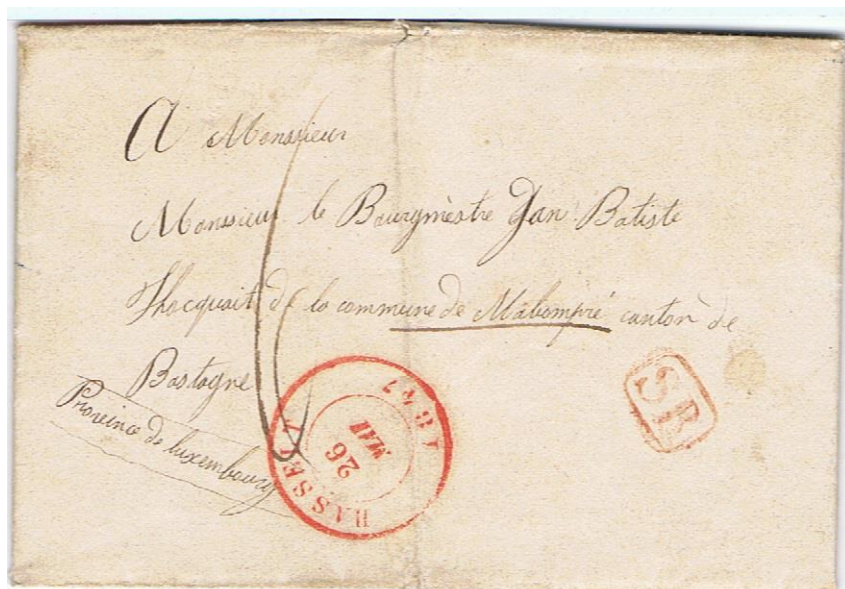 A Monsieur
Monssieur le Bourgmèstre Jan Batiste
de la commune de Mabompré canton de
Bastogne
Province de luxembourg
HASSELT
26
MAI
1847
SR
6